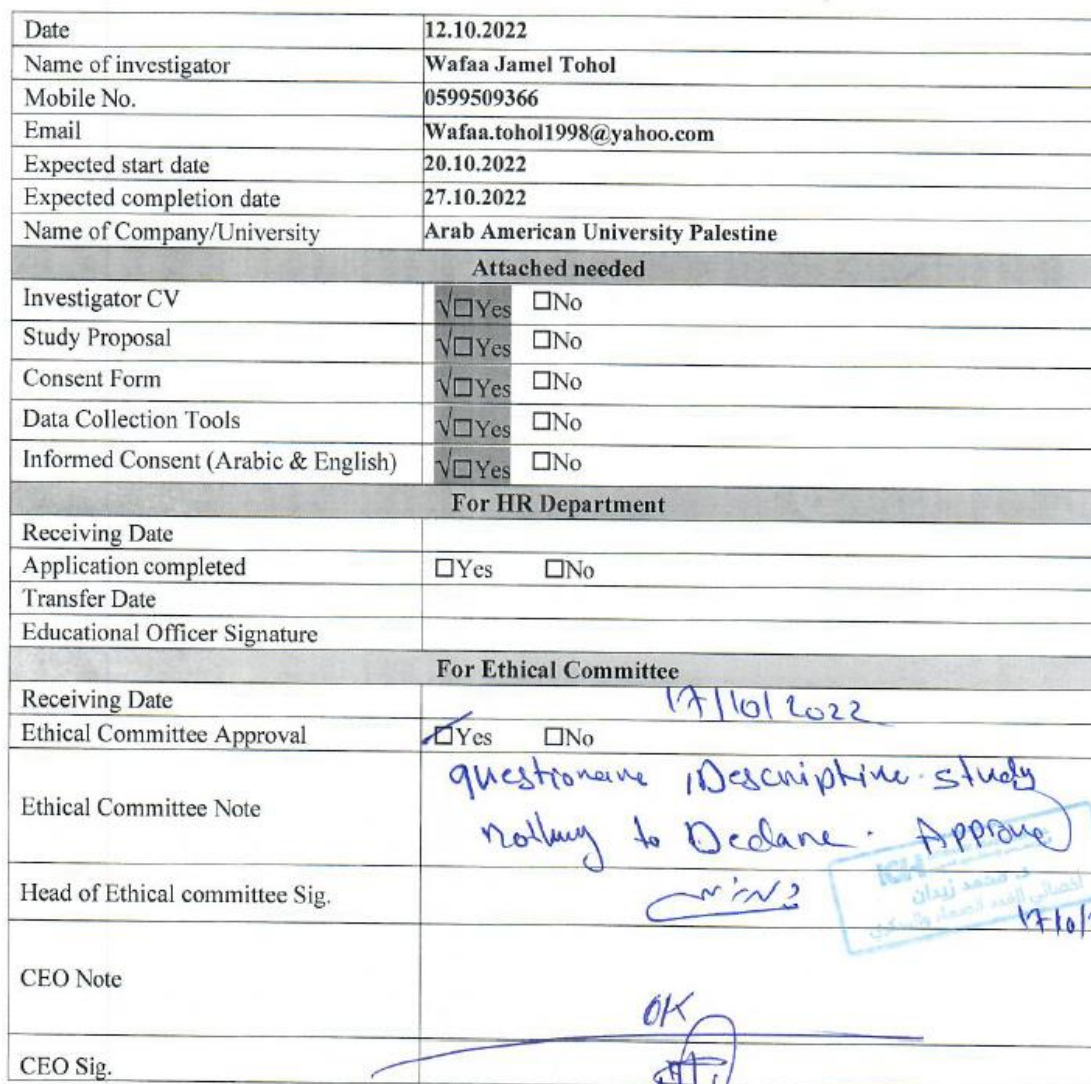 Date 12.10.2022
Name of investigator Wafaa Jamel Tohol
Mobile No. 0599509366
Email Wafaa.tohol1998@yahoo.com
Expected start date 20.10.2022
Expected completion date 27.10.2022
Name of Company/University Arab American University Palestine
Attached needed
Investigator CV √☐Yes ☐No
Study Proposal √☐Yes ☐No
Consent Form √☐Yes ☐No
Data Collection Tools √☐Yes ☐No
Informed Consent (Arabic & English) √☐Yes ☐No
For HR Department
Receiving Date
Application completed ☐Yes ☐No
Transfer Date
Educational Officer Signature
For Ethical Committee
Receiving Date 17/10/2022
Ethical Committee Approval ☑Yes ☐No
questionare , Descriptive study
Ethical Committee Note
nothing to Declare . Approve
ICH
د. محمد زيدان
Head of Ethical committee Sig.
اخصائي الغدد الصماء والسكري
17/10/
CEO Note
OK
CEO Sig.